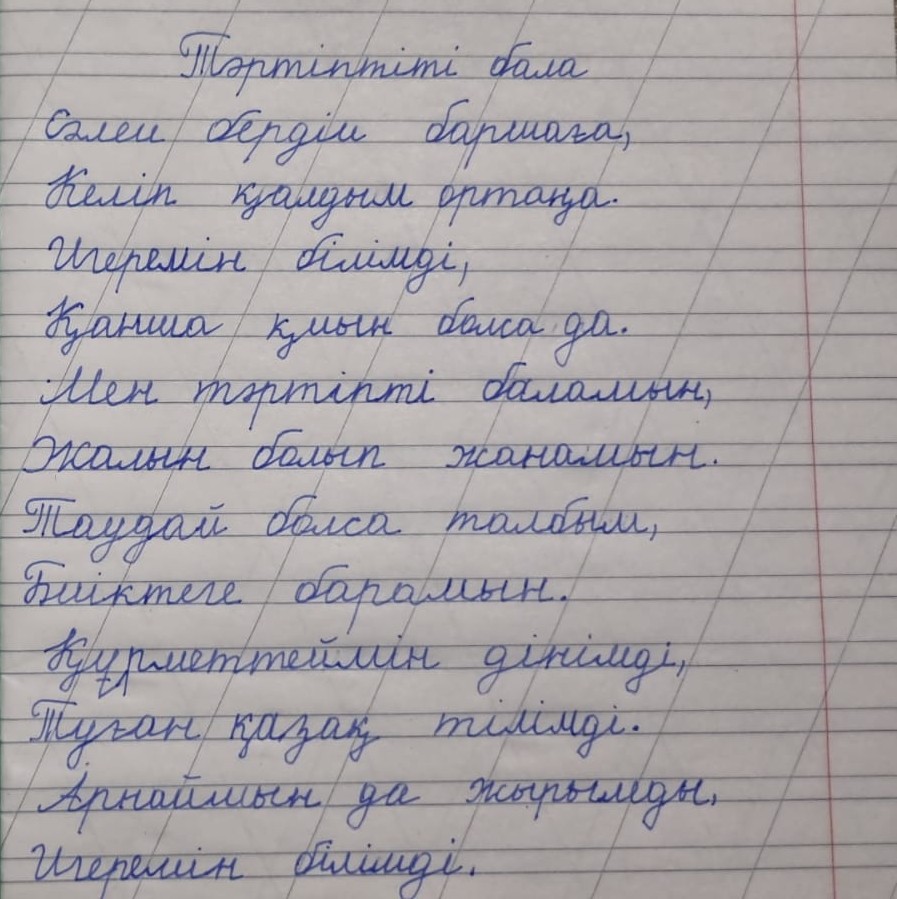 Тәртіптіті бала
Сәлем бердім баршаға,
Келіп қалдым ортаңа.
Игеремін білімді,
Қанша қиын болса да.
Мен тәртіпті баламын,
Жалын болып жанамын.
Таудай болса талбым,
Биіктеге барамын.
Құрметтеймін дінімді,
Туған қазақ тілімді.
Арнаймын да жырымды,
Игеремін білімді.